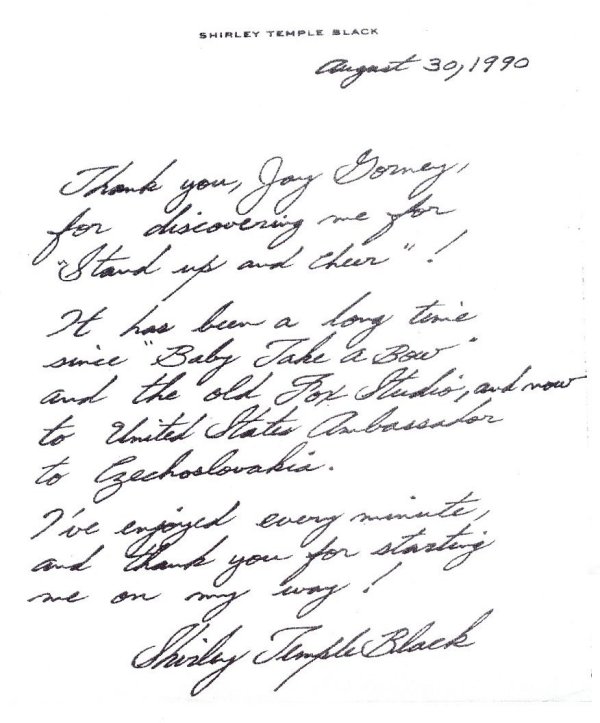 SHIRLEY TEMPLE BLACK
August 30, 1990
Thank you, Jay Gorney,
for discovering me for
"Stand up and Cheer"!
It has been a long time
since "Baby Take a Bow"
and the old Fox Studio, and now
to United States Ambassador
to Czechoslovakia.
I've enjoyed every minute,
and thank you for starting
me on my way!
Shirley Temple Black